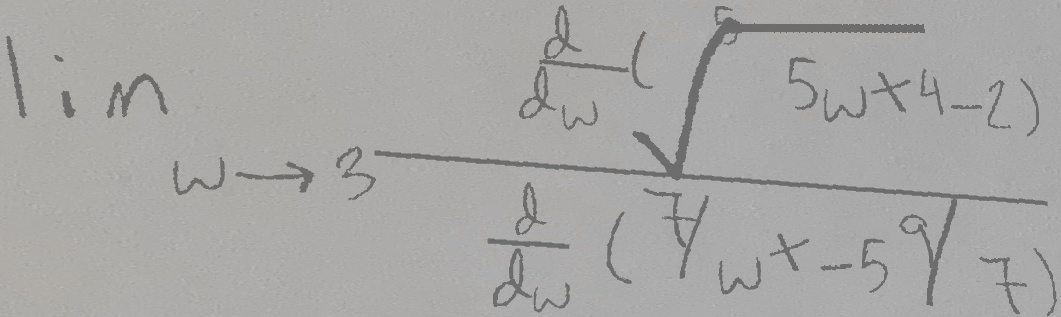 lim w→3
d/dw (⁵√ 5w+4-2)
d/dw (7/w+-5 9/7)